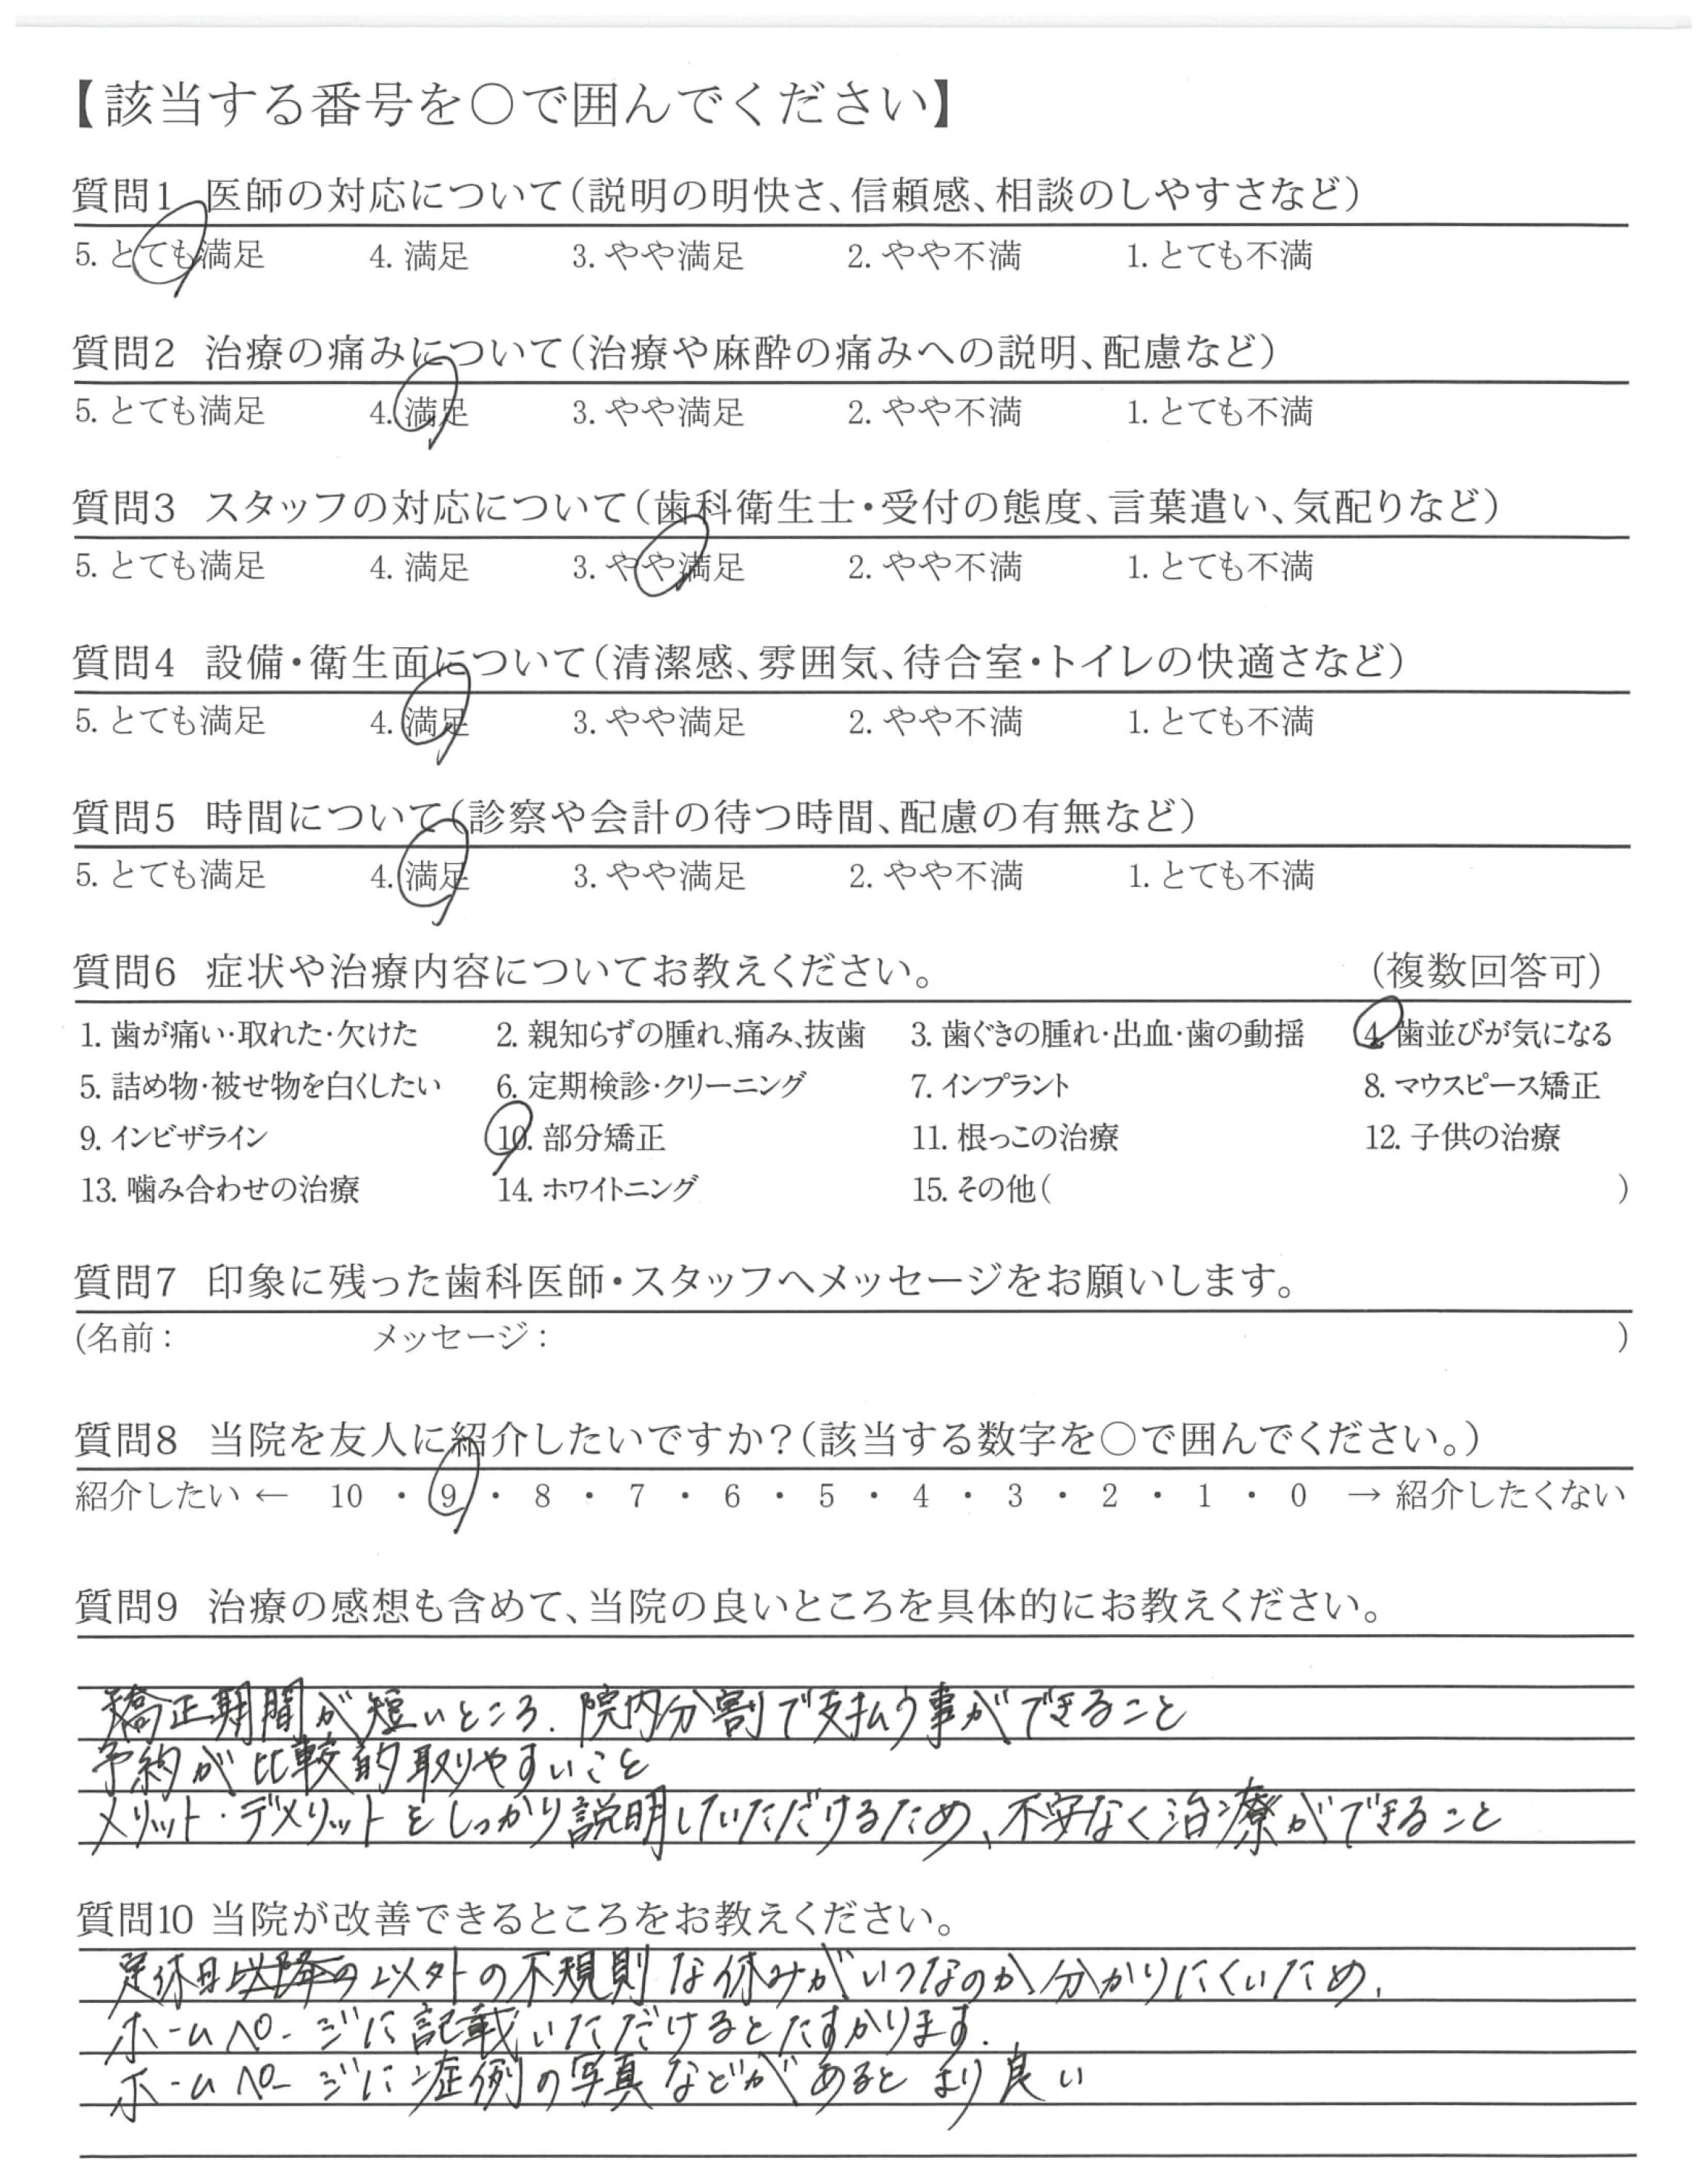 【該当する番号を○で囲んでください】
質問1 医師の対応について(説明の明快さ、信頼感、相談のしやすさなど)
5. とても満足 4. 満足 3. やや満足 2. やや不満 1. とても不満
質問2 治療の痛みについて(治療や麻酔の痛みへの説明、配慮など)
5. とても満足 4. 満足 3. やや満足 2. やや不満 1. とても不満
質問3 スタッフの対応について(歯科衛生士・受付の態度、言葉遣い、気配りなど)
5. とても満足 4. 満足 3. やや満足 2. やや不満 1. とても不満
質問4 設備・衛生面について(清潔感、雰囲気、待合室・トイレの快適さなど)
5. とても満足 4. 満足 3. やや満足 2. やや不満 1. とても不満
質問5 時間について(診察や会計の待つ時間、配慮の有無など)
5. とても満足 4. 満足 3. やや満足 2. やや不満 1. とても不満
質問6 症状や治療内容についてお教えください。 (複数回答可)
1. 歯が痛い・取れた・欠けた 2. 親知らずの腫れ、痛み、抜歯 3. 歯ぐきの腫れ・出血・歯の動揺 4. 歯並びが気になる
5. 詰め物・被せ物を白くしたい 6. 定期検診・クリーニング 7. インプラント 8. マウスピース矯正
9. インビザライン 10. 部分矯正 11. 根っこの治療 12. 子供の治療
13. 噛み合わせの治療 14. ホワイトニング 15. その他( )
質問7 印象に残った歯科医師・スタッフへメッセージをお願いします。
(名前: メッセージ: )
質問8 当院を友人に紹介したいですか?(該当する数字を○で囲んでください。)
紹介したい ← 10 ・ 9 ・ 8 ・ 7 ・ 6 ・ 5 ・ 4 ・ 3 ・ 2 ・ 1 ・ 0 → 紹介したくない
質問9 治療の感想も含めて、当院の良いところを具体的にお教えください。
矯正期間が短いところ. 院内分割で支払う事ができること
予約が比較的取りやすいこと
メリット・デメリットをしっかり説明していただけるため、不安なく治療ができること
質問10 当院が改善できるところをお教えください。
定休日以降の以外の不規則な休みがいつなのか分かりにくいため.
ホームページに記載いただけるとたすかります.
ホームページに症例の写真などがあるとより良い